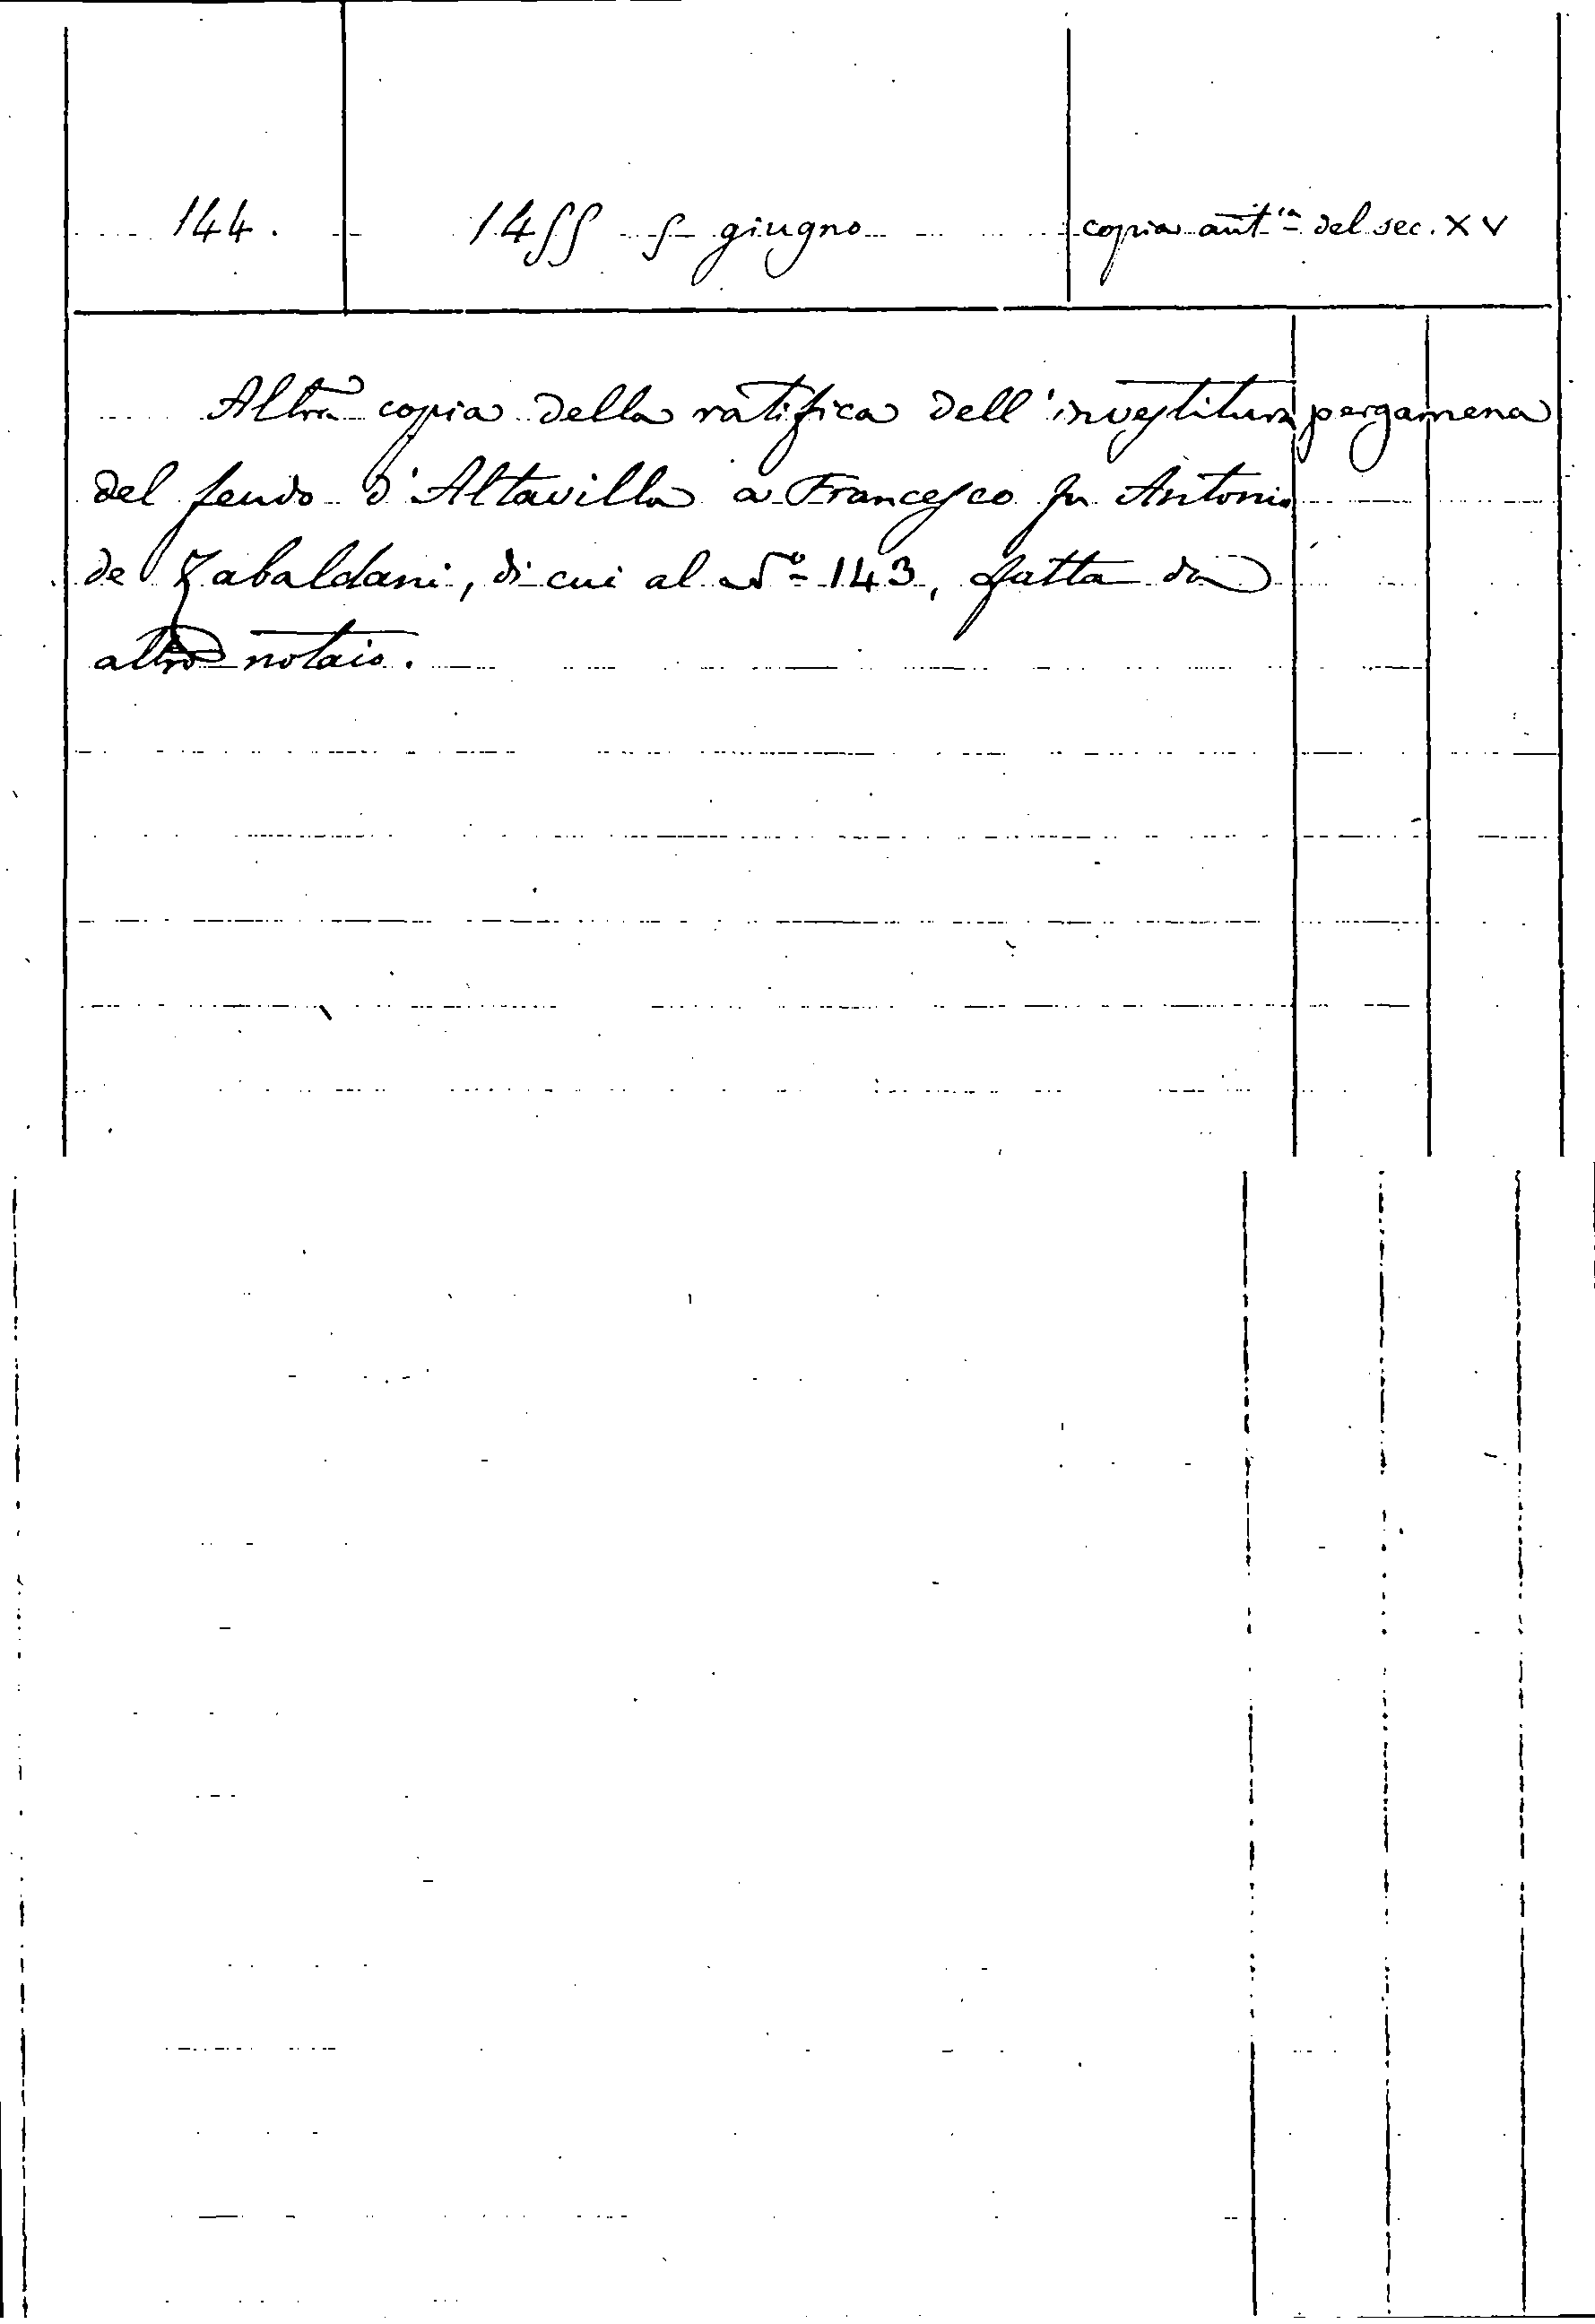 144. 1455 5 giugno copia aut.ca del sec. XV
Altra copia della ratifica dell'investitura pergamena
del feudo d'Altavilla a Francesco fu Antonio
de Zabaldani, di cui al N.º 143, fatta da
altro notaio.